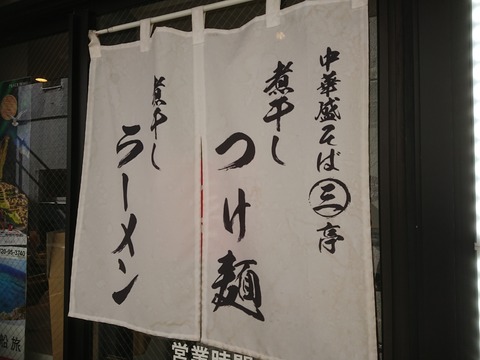 中華盛そば㊂亭
煮干し
つけ麺
煮干し
ラーメン
営業時間
20-95-3740
船旅